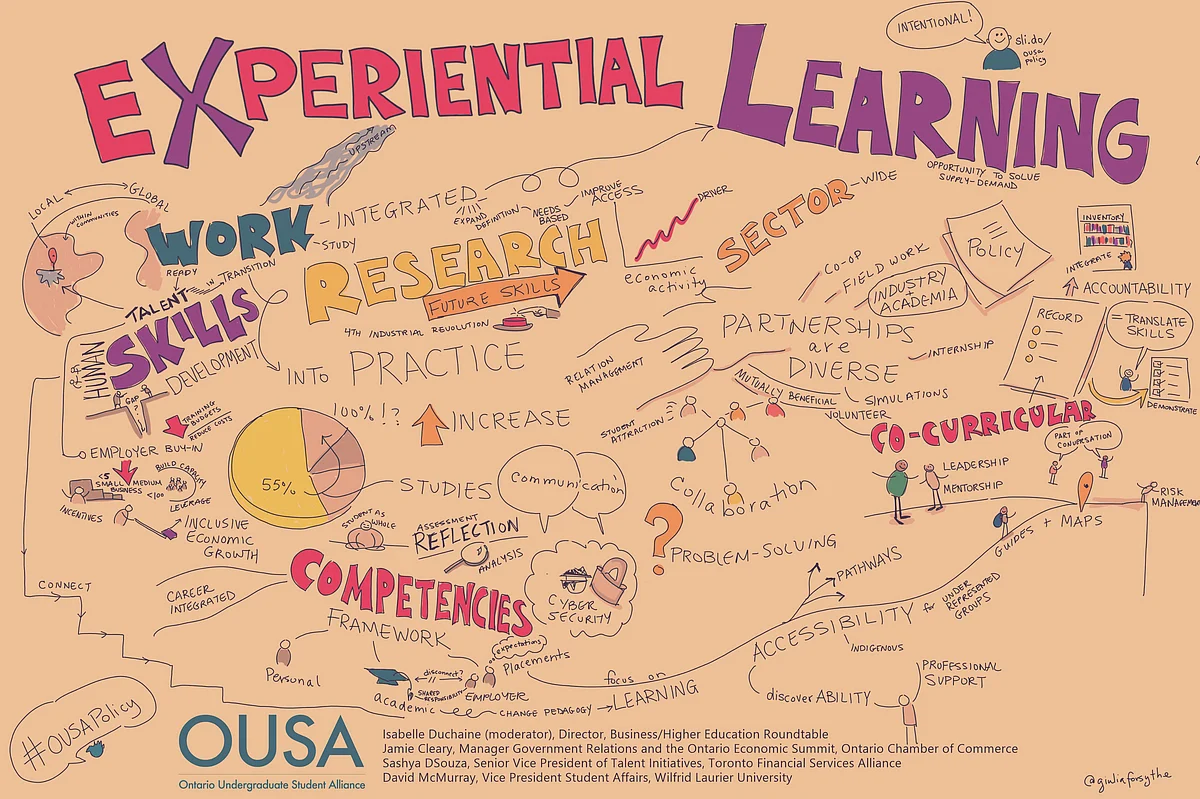 INTENTIONAL!
sli.do/
ousa
policy
EXPERIENTIAL LEARNING
OPPORTUNITY TO SOLVE
SUPPLY-DEMAND
UPSTREAM
LOCAL
GLOBAL
WITHIN
COMMUNITIES
WORK
-INTEGRATED
-STUDY
EXPAND
DEFINITION
NEEDS
BASED
IMPROVE
ACCESS
READY
IN TRANSITION
TALENT
SKILLS
DEVELOPMENT
HUMAN
GAP
RESEARCH
FUTURE SKILLS
4TH INDUSTRIAL REVOLUTION
INTO PRACTICE
DRIVER
economic
activity
SECTOR-WIDE
CO-OP
FIELD WORK
INDUSTRY
+
ACADEMIA
POLICY
INVENTORY
INTEGRATE
ACCOUNTABILITY
RECORD
= TRANSLATE
SKILLS
DEMONSTRATE
PARTNERSHIPS
are
DIVERSE
INTERNSHIP
SIMULATIONS
VOLUNTEER
MUTUALLY BENEFICIAL
RELATION
MANAGEMENT
STUDENT
ATTRACTION
CO-CURRICULAR
PART OF
CONVERSATION
LEADERSHIP
MENTORSHIP
RISK
MANAGEMENT
GUIDES + MAPS
TRAINING
BUDGETS
REDUCE COSTS
EMPLOYER BUY-IN
<5
SMALL MEDIUM
BUSINESS
<100
BUILD CAPACITY
LEVERAGE
INCENTIVES
INCLUSIVE
ECONOMIC
GROWTH
100%!?
INCREASE
55%
STUDIES
STUDENT AS
WHOLE
ASSESSMENT
REFLECTION
ANALYSIS
Communication
Collaboration
? PROBLEM-SOLVING
CYBER
SECURITY
CONNECT
CAREER
INTEGRATED
COMPETENCIES
FRAMEWORK
Personal
academic
disconnect?
SHARED
RESPONSIBILITY
EMPLOYER
expectations
Placements
CHANGE PEDAGOGY
focus on
LEARNING
PATHWAYS
ACCESSIBILITY for UNDER
REPRESENTED
GROUPS
INDIGENOUS
discover ABILITY
PROFESSIONAL
SUPPORT
#OUSAPolicy
OUSA
Ontario Undergraduate Student Alliance
Isabelle Duchaine (moderator), Director, Business/Higher Education Roundtable
Jamie Cleary, Manager Government Relations and the Ontario Economic Summit, Ontario Chamber of Commerce
Sashya DSouza, Senior Vice President of Talent Initiatives, Toronto Financial Services Alliance
David McMurray, Vice President Student Affairs, Wilfrid Laurier University
@giuliaforsythe